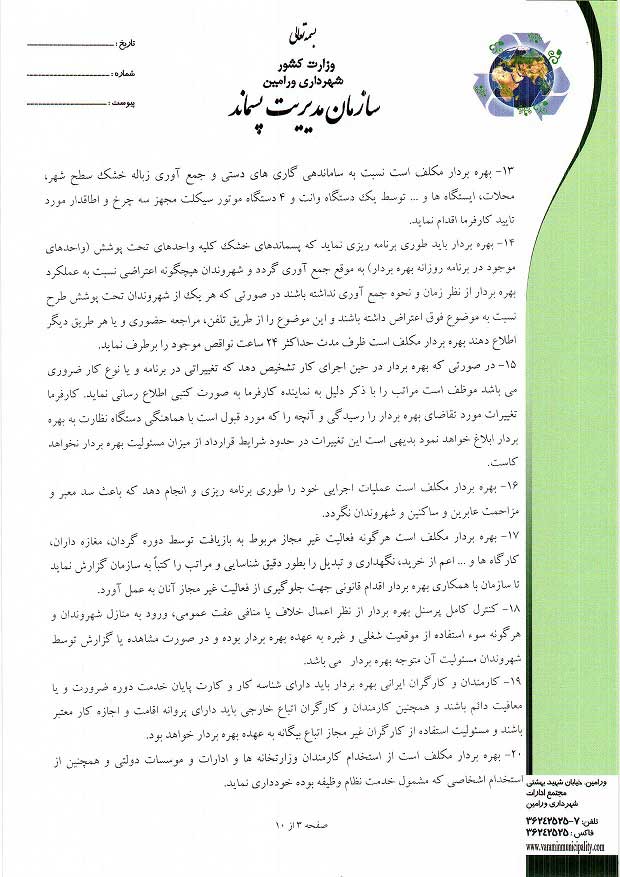 بسمه تعالی
وزارت کشور
شهرداری ورامین
سازمان مدیریت پسماند
تاریخ :
شماره :
پیوست :
۱۳- بهره بردار مکلف است نسبت به ساماندهی گاری های دستی و جمع آوری زباله خشک سطح شهر،
محلات، ایستگاه ها و ... توسط یک دستگاه وانت و ۴ دستگاه موتور سیکلت مجهز سه چرخ و اطاقدار مورد
تایید کارفرما اقدام نماید.
۱۴- بهره بردار باید طوری برنامه ریزی نماید که پسماندهای خشک کلیه واحدهای تحت پوشش (واحدهای
موجود در برنامه روزانه بهره بردار) به موقع جمع آوری گردد و شهروندان هیچگونه اعتراضی نسبت به عملکرد
بهره بردار از نظر زمان و نحوه جمع آوری نداشته باشند در صورتی که هر یک از شهروندان تحت پوشش طرح
نسبت به موضوع فوق اعتراض داشته باشند و این موضوع را از طریق تلفن، مراجعه حضوری و یا هر طریق دیگر
اطلاع دهند بهره بردار مکلف است ظرف مدت حداکثر ۲۴ ساعت نواقص موجود را برطرف نماید.
۱۵- در صورتی که بهره بردار در حین اجرای کار تشخیص دهد که تغییراتی در برنامه و یا نوع کار ضروری
می باشد موظف است مراتب را با ذکر دلیل به نماینده کارفرما به صورت کتبی اطلاع رسانی نماید. کارفرما
تغییرات مورد تقاضای بهره بردار را رسیدگی و آنچه را که مورد قبول است با هماهنگی دستگاه نظارت به بهره
بردار ابلاغ خواهد نمود بدیهی است این تغییرات در حدود شرایط قرارداد از میزان مسئولیت بهره بردار نخواهد
کاست.
۱۶- بهره بردار مکلف است عملیات اجرایی خود را طوری برنامه ریزی و انجام دهد که باعث سد معبر و
مزاحمت عابرین و ساکنین و شهروندان نگردد.
۱۷- بهره بردار مکلف است هرگونه فعالیت غیر مجاز مربوط به بازیافت توسط دوره گردان، مغازه داران،
کارگاه ها و ... اعم از خرید، نگهداری و تبدیل را بطور دقیق شناسایی و مراتب را کتباً به سازمان گزارش نماید
تا سازمان با همکاری بهره بردار اقدام قانونی جهت جلوگیری از فعالیت غیر مجاز آنان به عمل آورد.
۱۸- کنترل کامل پرسنل بهره بردار از نظر اعمال خلاف یا منافی عفت عمومی، ورود به منازل شهروندان و
هرگونه سوء استفاده از موقعیت شغلی و غیره به عهده بهره بردار بوده و در صورت مشاهده یا گزارش توسط
شهروندان مسئولیت آن متوجه بهره بردار می باشد.
۱۹- کارمندان و کارگران ایرانی بهره بردار باید دارای شناسه کار و کارت پایان خدمت دوره ضرورت و یا
معافیت دائم باشند و همچنین کارمندان و کارگران اتباع خارجی باید دارای پروانه اقامت و اجازه کار معتبر
باشند و مسئولیت استفاده از کارگران غیر مجاز اتباع بیگانه به عهده بهره بردار خواهد بود.
۲۰- بهره بردار مکلف است از استخدام کارمندان وزارتخانه ها و ادارات و موسسات دولتی و همچنین از
استخدام اشخاصی که مشمول خدمت نظام وظیفه بوده خودداری نماید.
صفحه ۳ از ۱۰
ورامین، خیابان شهید بهشتی
مجتمع ادارات
شهرداری ورامین
تلفن: ۷-۳۶۲۴۲۵۲۵
فاکس: ۳۶۲۴۲۵۲۵
www.varaminmunicipality.com